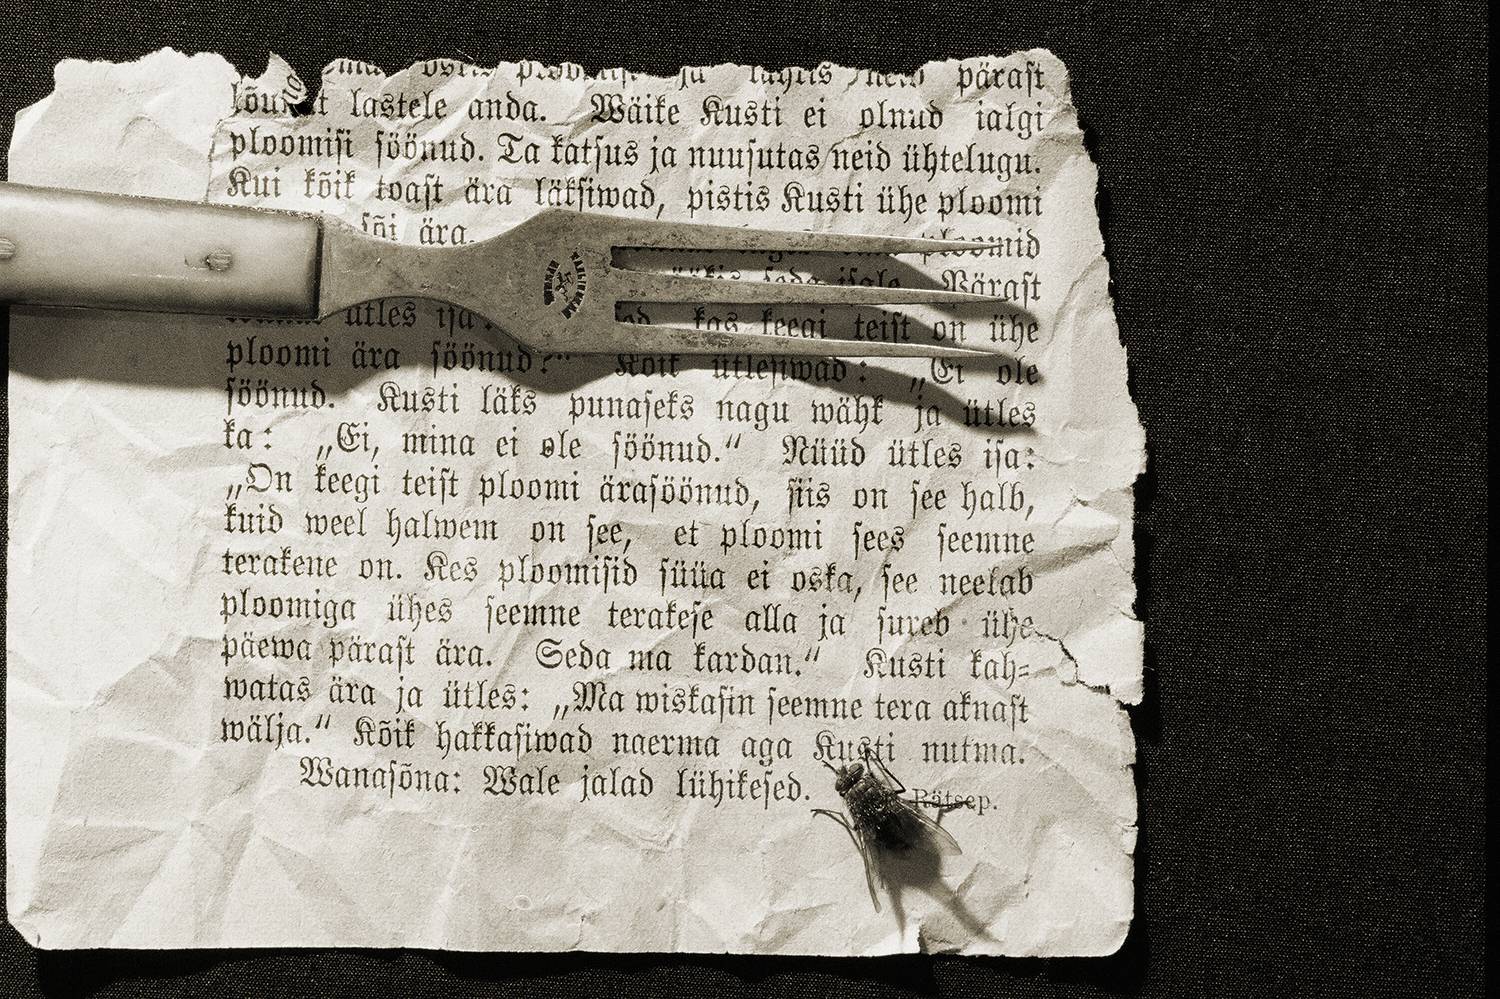 pärast
lastele anda. Wäike Kusti ei olnud ialgi
ploomisi söönud. Ta katsus ja nuusutas neid ühtelugu.
Kui kõik toast ära läksiwad, pistis Kusti ühe ploomi
sõi ära.
ploomid
seda isale. Pärast
ütles isa: kas keegi teist on ühe
ploomi ära söönud?“ Kõik ütlesiwad: „Ei ole
söönud. Kusti läks punaseks nagu wähk ja ütles
ka: „Ei, mina ei ole söönud.“ Nüüd ütles isa:
„On keegi teist ploomi ärasöönud, siis on see halb,
kuid weel halwem on see, et ploomi sees seemne
terakene on. Kes ploomisid süüa ei oska, see neelab
ploomiga ühes seemne terakese alla ja sureb ühe
päewa pärast ära. Seda ma kardan.“ Kusti kah-
watas ära ja ütles: „Ma wiskasin seemne tera aknast
wälja.“ Kõik hakkasiwad naerma aga Kusti nutma.
Wanasõna: Wale jalad lühikesed.
Rätsep.